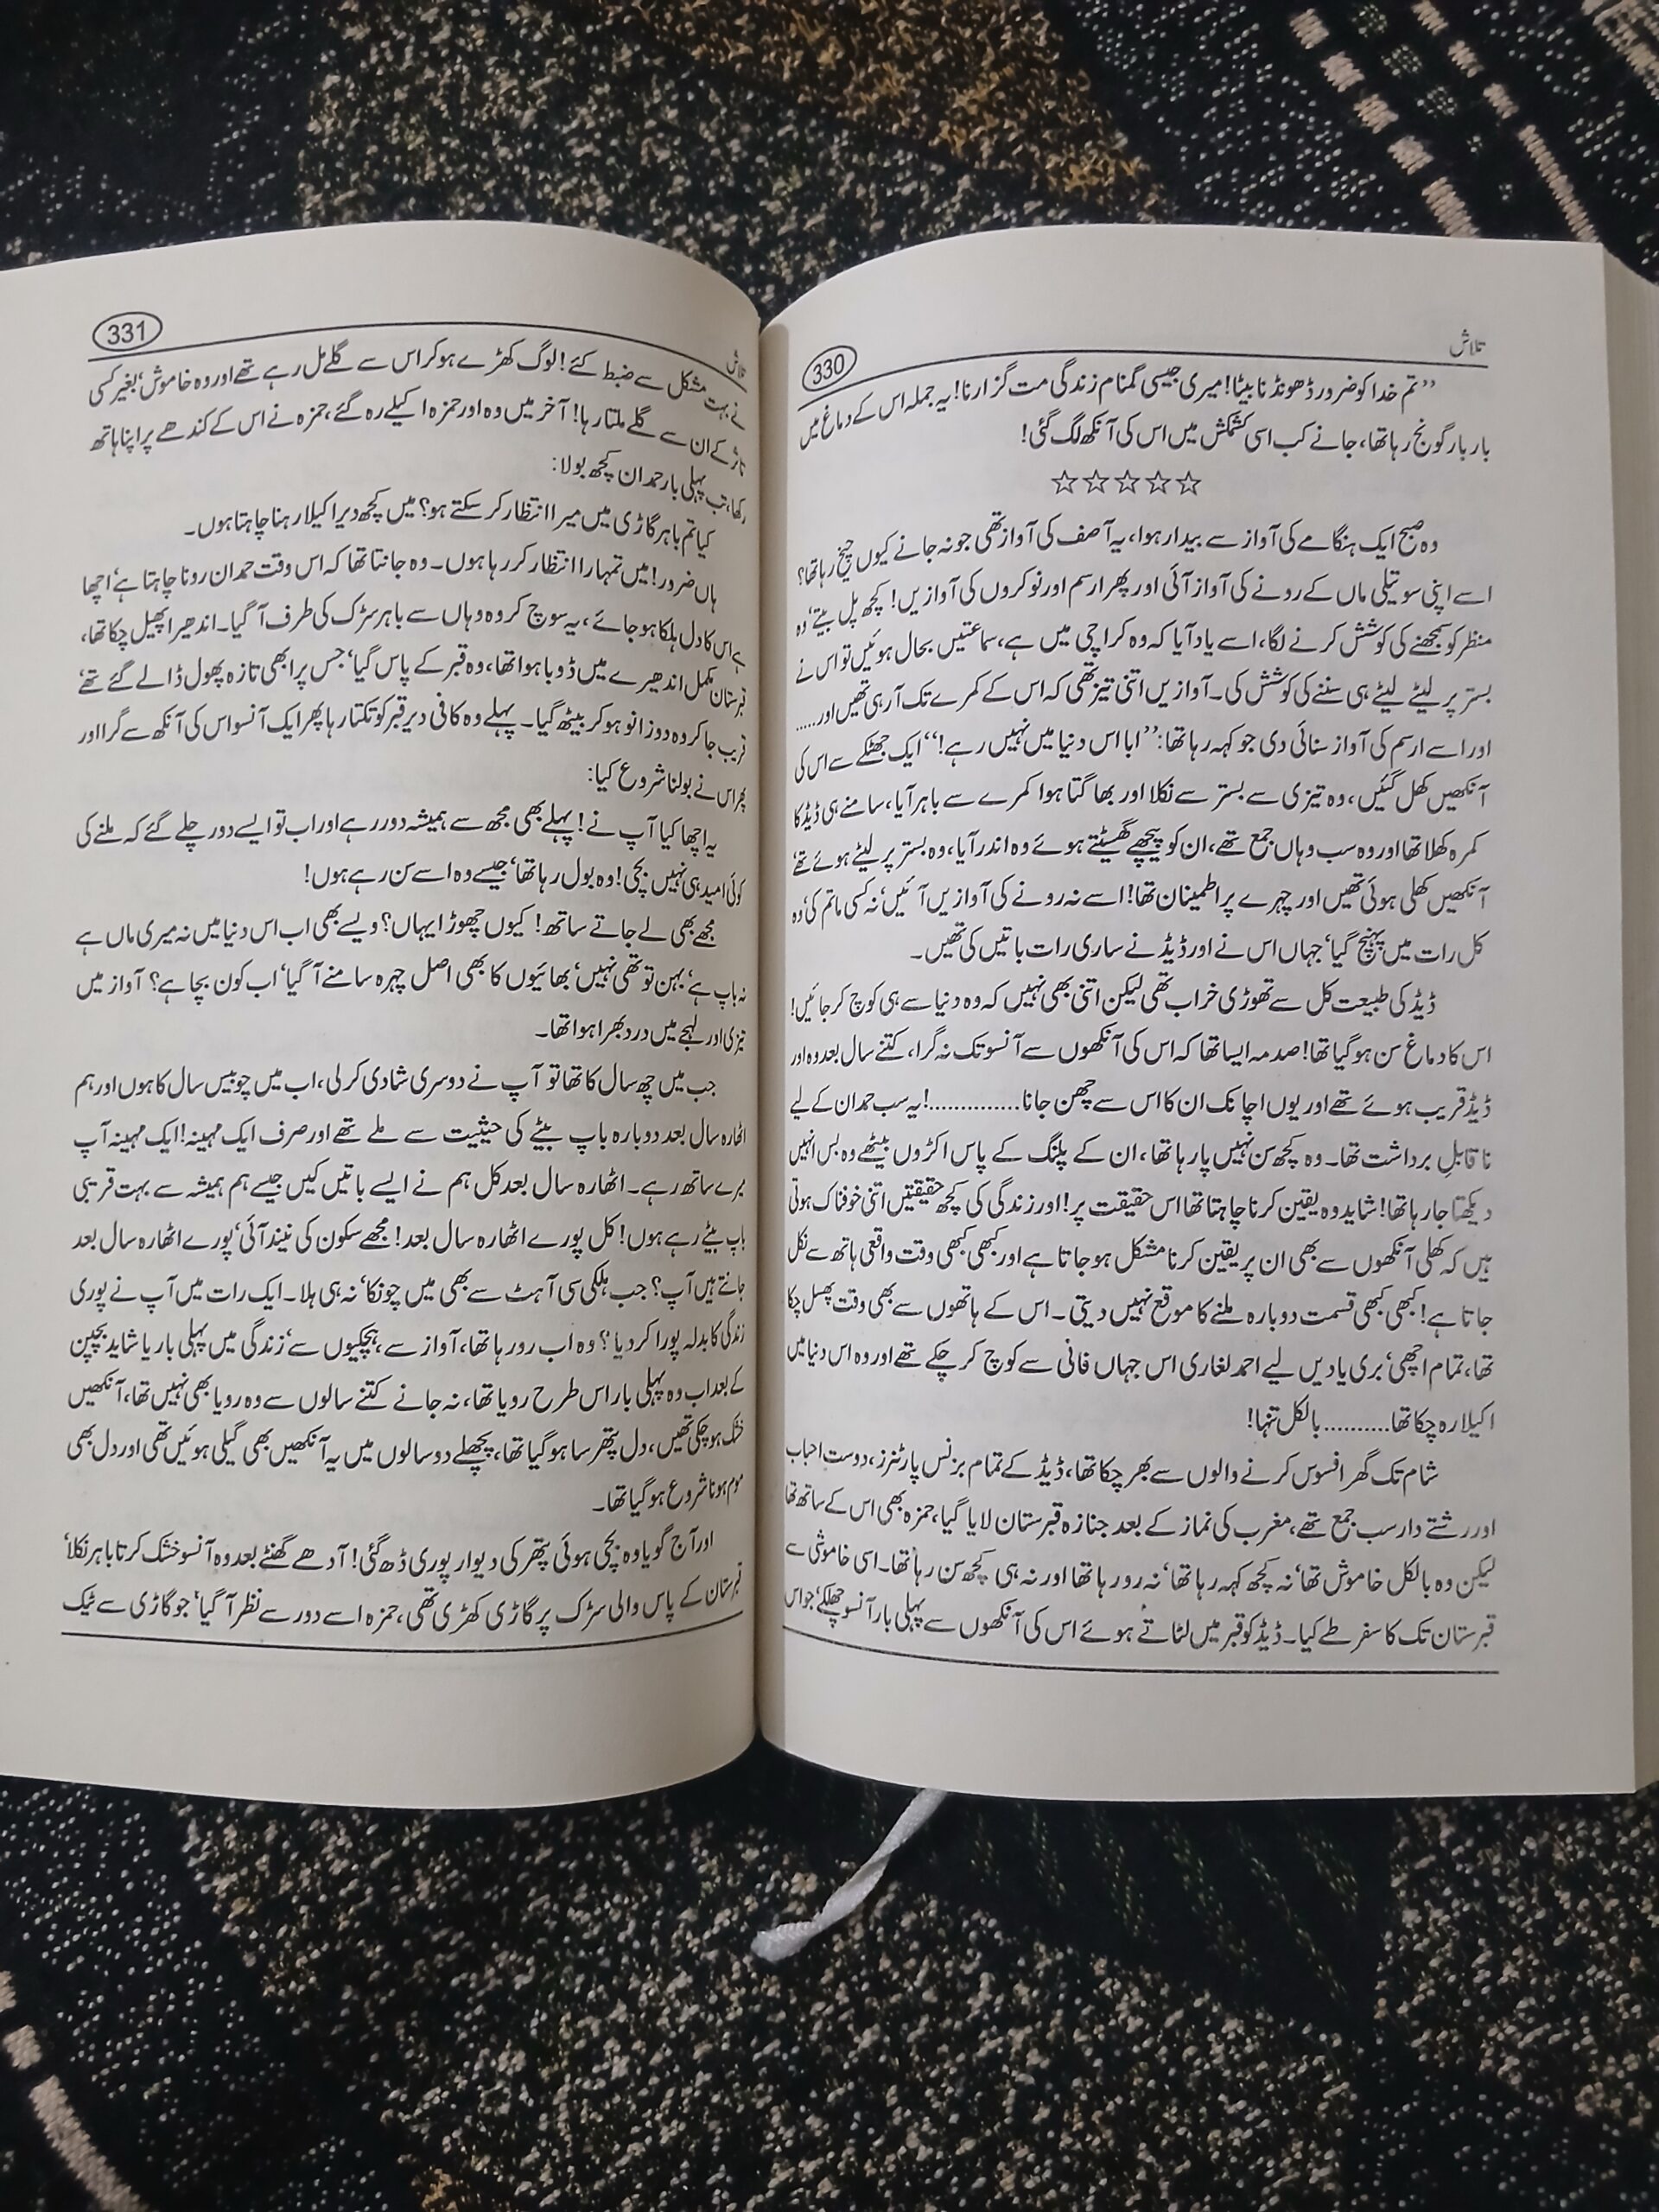 تلاش
330
’’تم خدا کو ضرور ڈھونڈنا بیٹا! میری جیسی گمنام زندگی مت گزارنا! یہ جملہ اس کے دماغ میں
بار بار گونج رہا تھا، جانے کب اسی کشمکش میں اس کی آنکھ لگ گئی!
☆☆☆☆☆
وہ صبح ایک ہنگامے کی آواز سے بیدار ہوا، یہ آصف کی آواز تھی جو نہ جانے کیوں چیخ رہا تھا؟
اسے اپنی سوتیلی ماں کے رونے کی آواز آئی اور پھر ارسم اور نوکروں کی آوازیں! کچھ پل بیتے‘ وہ
منظر کو سمجھنے کی کوشش کرنے لگا، اسے یاد آیا کہ وہ کراچی میں ہے، سماعتیں بحال ہوئیں تو اس نے
بستر پر لیٹے لیٹے ہی سننے کی کوشش کی۔ آوازیں اتنی تیز تھی کہ اس کے کمرے تک آ رہی تھیں اور.....
اور اسے ارسم کی آواز سنائی دی جو کہہ رہا تھا: ’’ابا اس دنیا میں نہیں رہے!‘‘ ایک جھٹکے سے اس کی
آنکھیں کھل گئیں، وہ تیزی سے بستر سے نکلا اور بھاگتا ہوا کمرے سے باہر آیا، سامنے ہی ڈیڈ کا
کمرہ کھلا تھا اور وہ سب وہاں جمع تھے، ان کو پیچھے گھسیٹتے ہوئے وہ اندر آیا، وہ بستر پر لیٹے ہوئے تھے‘
آنکھیں کھلی ہوئی تھیں اور چہرے پر اطمینان تھا! اسے نہ رونے کی آوازیں آئیں‘ نہ کسی ماتم کی‘ وہ
کل رات میں پہنچ گیا‘ جہاں اس نے اور ڈیڈ نے ساری رات باتیں کی تھیں۔
ڈیڈ کی طبیعت کل سے تھوڑی خراب تھی لیکن اتنی بھی نہیں کہ وہ دنیا سے ہی کوچ کر جائیں!
اس کا دماغ سن ہو گیا تھا! صدمہ ایسا تھا کہ اس کی آنکھوں سے آنسو تک نہ گرا، کتنے سال بعد وہ اور
ڈیڈ قریب ہوئے تھے اور یوں اچانک ان کا اس سے چھن جانا..............! یہ سب حمدان کے لیے
ناقابلِ برداشت تھا۔ وہ کچھ سن نہیں پا رہا تھا، ان کے پلنگ کے پاس اکڑوں بیٹھے وہ بس انہیں
دیکھتا جا رہا تھا! شاید وہ یقین کرنا چاہتا تھا اس حقیقت پر! اور زندگی کی کچھ حقیقتیں اتنی خوفناک ہوتی
ہیں کہ کھلی آنکھوں سے بھی ان پر یقین کرنا مشکل ہو جاتا ہے اور کبھی کبھی وقت واقعی ہاتھ سے نکل
جاتا ہے! کبھی کبھی قسمت دوبارہ ملنے کا موقع نہیں دیتی۔ اس کے ہاتھوں سے بھی وقت پھسل چکا
تھا، تمام اچھی‘ بری یادیں لیے احمد لغاری اس جہاں فانی سے کوچ کر چکے تھے اور وہ اس دنیا میں
اکیلا رہ چکا تھا.......... بالکل تنہا!
شام تک گھر افسوس کرنے والوں سے بھر چکا تھا، ڈیڈ کے تمام بزنس پارٹنرز، دوست احباب
اور رشتے دار سب جمع تھے، مغرب کی نماز کے بعد جنازہ قبرستان لایا گیا، حمزہ بھی اس کے ساتھ تھا
لیکن وہ بالکل خاموش تھا‘ نہ کچھ کہہ رہا تھا‘ نہ رو رہا تھا اور نہ ہی کچھ سن رہا تھا۔ اسی خاموشی سے
قبرستان تک کا سفر طے کیا۔ ڈیڈ کو قبر میں لٹاتے ہوئے اس کی آنکھوں سے پہلی بار آنسو چھلکے‘ جو اس
تلاش
331
نے بہت مشکل سے ضبط کئے! لوگ کھڑے ہو کر اس سے گلے مل رہے تھے اور وہ خاموش‘ بغیر کسی
تاثر کے ان سے گلے ملتا رہا! آخر میں وہ اور حمزہ اکیلے رہ گئے، حمزہ نے اس کے کندھے پر اپنا ہاتھ
رکھا، تب پہلی بار حمدان کچھ بولا:
کیا تم باہر گاڑی میں میرا انتظار کر سکتے ہو؟ میں کچھ دیر اکیلا رہنا چاہتا ہوں۔
ہاں ضرور! میں تمہارا انتظار کر رہا ہوں۔ وہ جانتا تھا کہ اس وقت حمدان رونا چاہتا ہے‘ اچھا
ہے اس کا دل ہلکا ہو جائے، یہ سوچ کر وہ وہاں سے باہر سڑک کی طرف آ گیا۔ اندھیرا پھیل چکا تھا،
قبرستان مکمل اندھیرے میں ڈوبا ہوا تھا، وہ قبر کے پاس گیا‘ جس پر ابھی تازہ پھول ڈالے گئے تھے‘
قریب جا کر وہ دو زانو ہو کر بیٹھ گیا۔ پہلے وہ کافی دیر قبر کو تکتا رہا پھر ایک آنسو اس کی آنکھ سے گرا اور
پھر اس نے بولنا شروع کیا:
یہ اچھا کیا آپ نے! پہلے بھی مجھ سے ہمیشہ دور رہے اور اب تو ایسے دور چلے گئے کہ ملنے کی
کوئی امید ہی نہیں بچی! وہ بول رہا تھا‘ جیسے وہ اسے سن رہے ہوں!
مجھے بھی لے جاتے ساتھ! کیوں چھوڑا یہاں؟ ویسے بھی اب اس دنیا میں نہ میری ماں ہے
نہ باپ ہے‘ بہن تو تھی نہیں‘ بھائیوں کا بھی اصل چہرہ سامنے آ گیا‘ اب کون بچا ہے؟ آواز میں
تیزی اور لہجے میں درد بھرا ہوا تھا۔
جب میں چھ سال کا تھا تو آپ نے دوسری شادی کر لی، اب میں چوبیس سال کا ہوں اور ہم
اٹھارہ سال بعد دوبارہ باپ بیٹے کی حیثیت سے ملے تھے اور صرف ایک مہینہ! ایک مہینہ آپ
میرے ساتھ رہے۔ اٹھارہ سال بعد کل ہم نے ایسے باتیں کیں جیسے ہم ہمیشہ سے بہت قریبی
باپ بیٹے رہے ہوں! کل پورے اٹھارہ سال بعد! مجھے سکون کی نیند آئی‘ پورے اٹھارہ سال بعد
جانتے ہیں آپ؟ جب ہلکی سی آہٹ سے بھی میں چونکا‘ نہ ہی ہلا۔ ایک رات میں آپ نے پوری
زندگی کا بدلہ پورا کر دیا؟ وہ اب رو رہا تھا، آواز سے، ہچکیوں سے‘ زندگی میں پہلی بار یا شاید بچپن
کے بعد اب وہ پہلی بار اس طرح رویا تھا، نہ جانے کتنے سالوں سے وہ رویا بھی نہیں تھا، آنکھیں
خشک ہو چکی تھیں، دل پتھر سا ہو گیا تھا، پچھلے دو سالوں میں یہ آنکھیں بھی گیلی ہوئیں تھی اور دل بھی
موم ہونا شروع ہو گیا تھا۔
اور آج گویا وہ بچی ہوئی پتھر کی دیوار پوری ڈھ گئی! آدھے گھنٹے بعد وہ آنسو خشک کرتا باہر نکلا‘
قبرستان کے پاس والی سڑک پر گاڑی کھڑی تھی، حمزہ اسے دور سے نظر آ گیا‘ جو گاڑی سے ٹیک